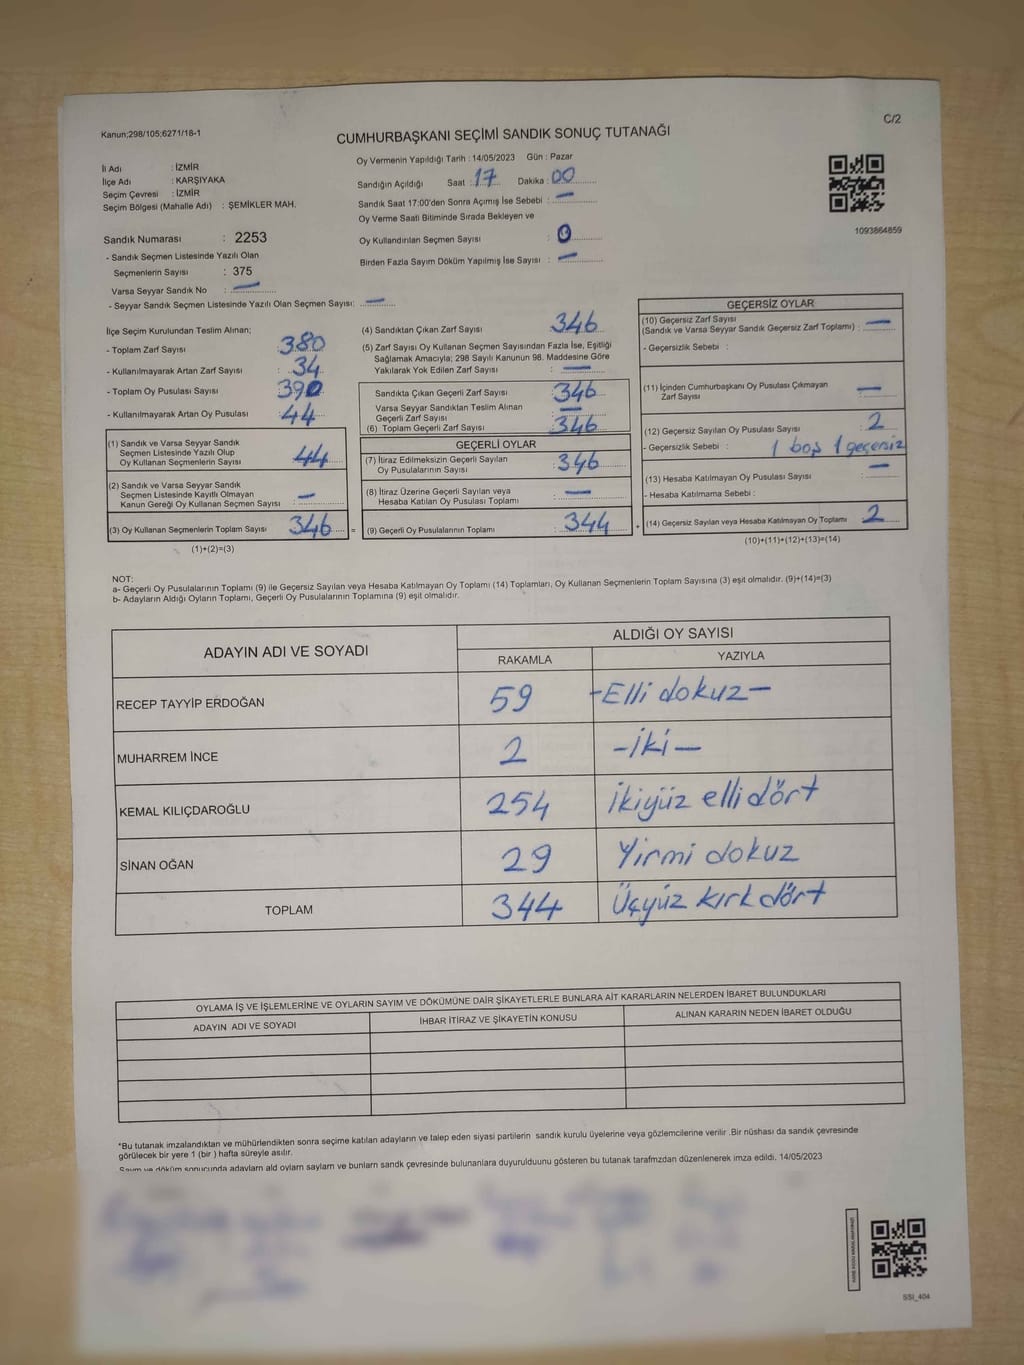 Kanun;298/105;6271/18-1
C/2
CUMHURBAŞKANI SEÇİMİ SANDIK SONUÇ TUTANAĞI
İl Adı : İZMİR
İlçe Adı : KARŞIYAKA
Seçim Çevresi : İZMİR
Seçim Bölgesi (Mahalle Adı) : ŞEMİKLER MAH.
Sandık Numarası : 2253
- Sandık Seçmen Listesinde Yazılı Olan
Seçmenlerin Sayısı : 375
Varsa Seyyar Sandık No : —
- Seyyar Sandık Seçmen Listesinde Yazılı Olan Seçmen Sayısı: —
Oy Vermenin Yapıldığı Tarih : 14/05/2023 Gün : Pazar
Sandığın Açıldığı Saat : 17 Dakika : 00
Sandık Saat 17:00'den Sonra Açımış İse Sebebi : —
Oy Verme Saati Bitiminde Sırada Bekleyen ve
Oy Kullandırılan Seçmen Sayısı : 0
Birden Fazla Sayım Döküm Yapılmış İse Sayısı : —
1093864859
İlçe Seçim Kurulundan Teslim Alınan;
- Toplam Zarf Sayısı : 380
- Kullanılmayarak Artan Zarf Sayısı : 34
- Toplam Oy Pusulası Sayısı : 390
- Kullanılmayarak Artan Oy Pusulası : 44
(1) Sandık ve Varsa Seyyar Sandık
Seçmen Listesinde Yazılı Olup
Oy Kullanan Seçmenlerin Sayısı : 44
(2) Sandık ve Varsa Seyyar Sandık
Seçmen Listesinde Kayıtlı Olmayan
Kanun Gereği Oy Kullanan Seçmen Sayısı : —
(3) Oy Kullanan Seçmenlerin Toplam Sayısı : 346 =
(1)+(2)=(3)
(4) Sandıktan Çıkan Zarf Sayısı : 346
(5) Zarf Sayısı Oy Kullanan Seçmen Sayısından Fazla İse, Eşitliği
Sağlamak Amacıyla; 298 Sayılı Kanunun 98. Maddesine Göre
Yakılarak Yok Edilen Zarf Sayısı : —
Sandıkta Çıkan Geçerli Zarf Sayısı : 346
Varsa Seyyar Sandıktan Teslim Alınan
Geçerli Zarf Sayısı : —
(6) Toplam Geçerli Zarf Sayısı : 346
GEÇERLİ OYLAR
(7) İtiraz Edilmeksizin Geçerli Sayılan
Oy Pusulalarının Sayısı : 346
(8) İtiraz Üzerine Geçerli Sayılan veya
Hesaba Katılan Oy Pusulası Toplamı : —
(9) Geçerli Oy Pusulalarının Toplamı : 344 +
GEÇERSİZ OYLAR
(10) Geçersiz Zarf Sayısı
(Sandık ve Varsa Seyyar Sandık Geçersiz Zarf Toplamı) : —
- Geçersizlik Sebebi :
(11) İçinden Cumhurbaşkanı Oy Pusulası Çıkmayan
Zarf Sayısı : —
(12) Geçersiz Sayılan Oy Pusulası Sayısı : 2
- Geçersizlik Sebebi : 1 boş 1 geçersiz
(13) Hesaba Katılmayan Oy Pusulası Sayısı : —
- Hesaba Katılmama Sebebi :
(14) Geçersiz Sayılan veya Hesaba Katılmayan Oy Toplamı : 2
(10)+(11)+(12)+(13)=(14)
NOT:
a- Geçerli Oy Pusulalarının Toplamı (9) ile Geçersiz Sayılan veya Hesaba Katılmayan Oy Toplamı (14) Toplamları, Oy Kullanan Seçmenlerin Toplam Sayısına (3) eşit olmalıdır. (9)+(14)=(3)
b- Adayların Aldığı Oyların Toplamı, Geçerli Oy Pusulalarının Toplamına (9) eşit olmalıdır.
ADAYIN ADI VE SOYADI ALDIĞI OY SAYISI
RAKAMLA YAZIYLA
RECEP TAYYİP ERDOĞAN 59 -Elli dokuz-
MUHARREM İNCE 2 -İki-
KEMAL KILIÇDAROĞLU 254 İkiyüz elli dört
SİNAN OĞAN 29 Yirmi dokuz
TOPLAM 344 Üçyüz kırk dört
OYLAMA İŞ VE İŞLEMLERİNE VE OYLARIN SAYIM VE DÖKÜMÜNE DAİR ŞİKAYETLERLE BUNLARA AİT KARARLARIN NELERDEN İBARET BULUNDUKLARI
ADAYIN ADI VE SOYADI İHBAR İTİRAZ VE ŞİKAYETİN KONUSU ALINAN KARARIN NEDEN İBARET OLDUĞU
*Bu tutanak imzalandıktan ve mühürlendikten sonra seçime katılan adayların ve talep eden siyasi partilerin sandık kurulu üyelerine veya gözlemcilerine verilir .Bir nüshası da sandık çevresinde
görülecek bir yere 1 (bir ) hafta süreyle asılır.
Sayım ve döküm sonucunda adayların ald oyların sayları ve bunların sandk çevresinde bulunanlara duyurulduunu gösteren bu tutanak tarafmzdan düzenlenerek imza edildi. 14/05/2023
SSI_404